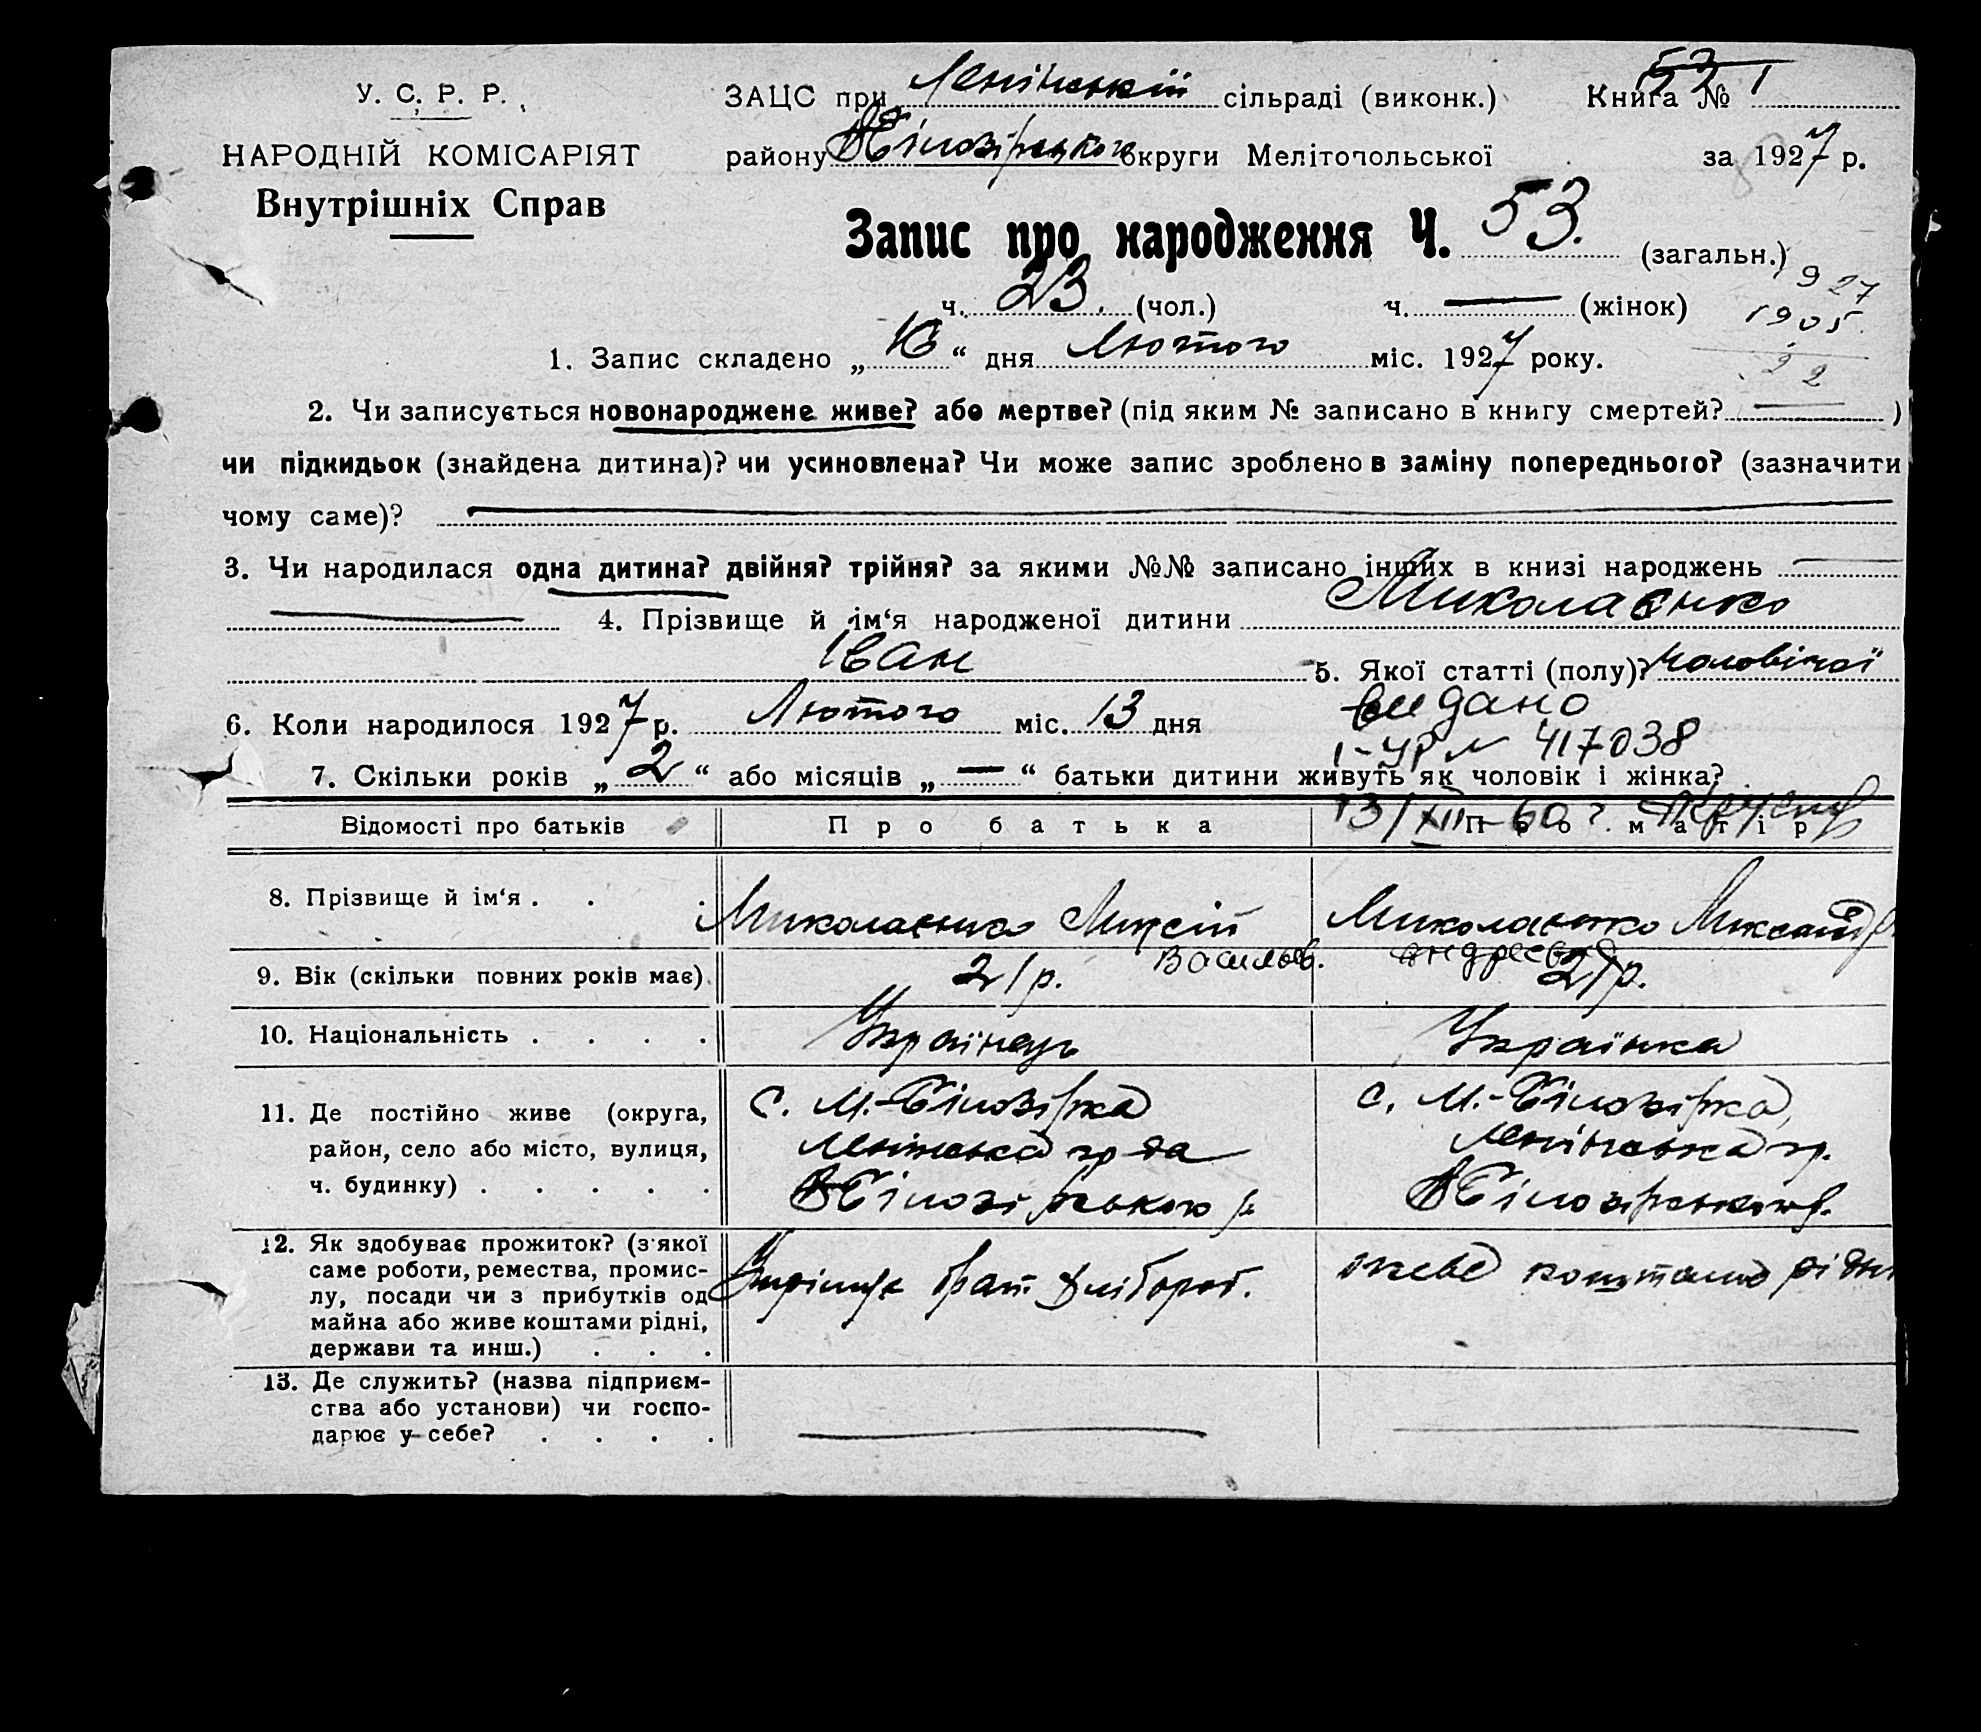 У. С. Р. Р.
НАРОДНІЙ КОМІСАРІЯТ
Внутрішніх Справ
ЗАЦС при Ленінській сільраді (виконк.) Книга № 1
району Білозірського округи Мелітопольської за 1927 р.
Запис про народження Ч. 53. (загальн.)
1927
1905
22
ч. 23. (чол.) ч. — (жінок)
1. Запис складено „ “ дня Лютого міс. 1927 року.
2. Чи записується новонароджене живе? або мертве? (під яким № записано в книгу смертей? — )
чи підкидьок (знайдена дитина)? чи усиновлена? Чи може запис зроблено в заміну попереднього? (зазначити
чому саме)? —
3. Чи народилася одна дитина? двійня? трійня? за якими №№ записано інших в книзі народжень —
— 4. Прізвище й ім‘я народженої дитини Миколаєнко
Іван 5. Якої статті (полу)? чоловічої
6. Коли народилося 1927 р. Лютого міс. 13 дня
видано
І-УР № 417038
13/XII-60 г.
7. Скільки років „2“ або місяців „—“ батьки дитини живуть як чоловік і жінка?
Відомості про батьків Про батька Про матір
8. Прізвище й ім‘я . . . Миколаєнко Миколаєнко
Васильев. андреевна
9. Вік (скільки повних років має) 21 р. 21 р.
10. Національність . . . . Українець Українка
11. Де постійно живе (округа, район, село або місто, вулиця, ч. будинку) . . . . .
с. М.-Білозірка
Ленінська
Білозірського р.
с. М.-Білозірка,
Ленінська
Білозірського р.
12. Як здобуває прожиток? (з якої саме роботи, ремества, промислу, посади чи з прибутків од майна або живе коштами рідні, держави та инш.) . . .
брат хлібороб.
живе коштами рідні
13. Де служить? (назва підприємства або установи) чи господарює у себе? . . . .
— —